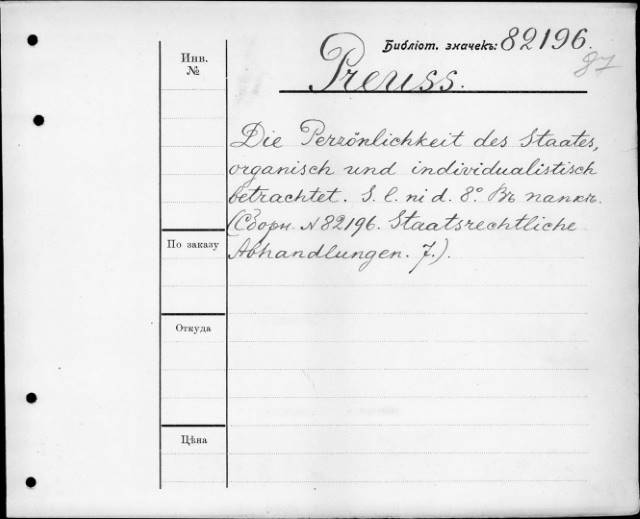 Библіот. значекъ: 82196.
87
Preuss.
Инв.
№
Die Perzönlichkeit des Staates,
organisch und individualistisch
betrachtet. S. l. ni d. 8° Въ папкѣ.
(Сборн. № 82196. Staatsrechtliche
Abhandlungen. 7.).
По заказу
Откуда
Цѣна